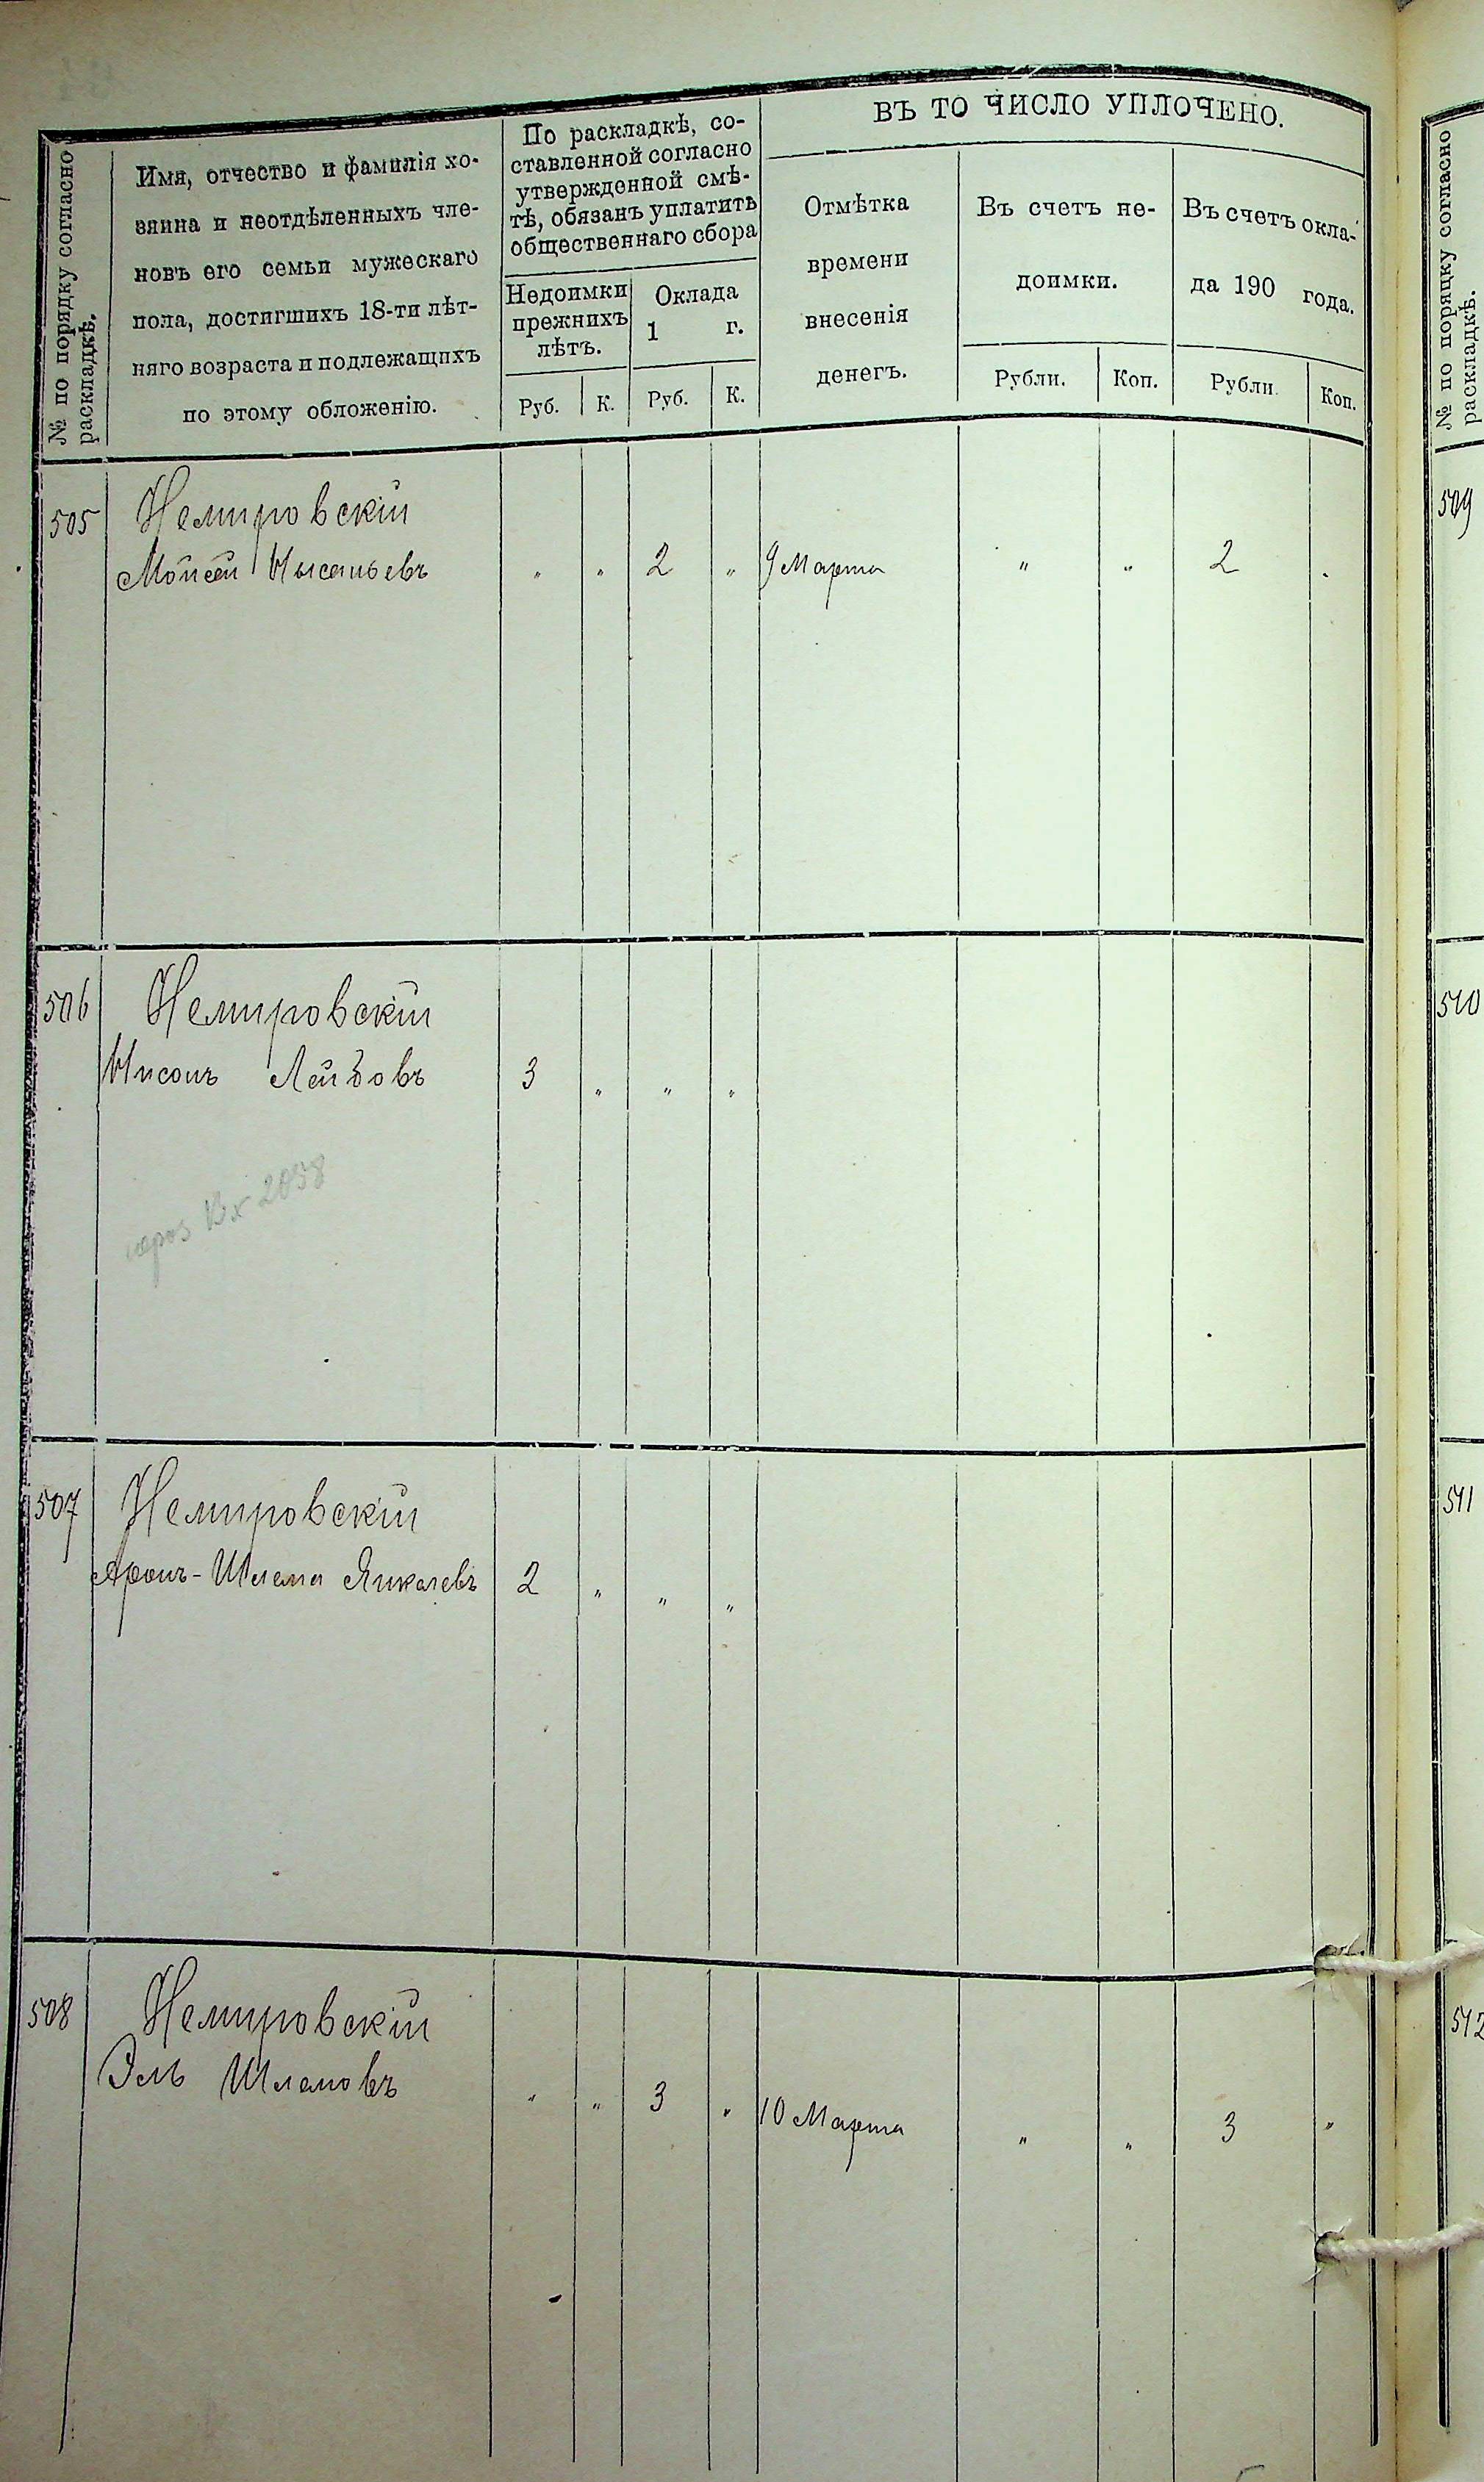 № по порядку согласно
раскладкѣ.
Имя, отчество и фамилія хо-
зяина и неотдѣленныхъ чле-
новъ его семьи мужескаго
пола, достигшихъ 18-ти лѣт-
няго возраста и подлежащихъ
по этому обложенію.
По раскладкѣ, со-
ставленной согласно
утвержденной смѣ-
тѣ, обязанъ уплатить
общественнаго сбора
Недоимки
прежнихъ
лѣтъ.
Оклада
1 г.
Руб. К. Руб. К.
ВЪ ТО ЧИСЛО УПЛОЧЕНО.
Отмѣтка
времени
внесенія
денегъ.
Въ счетъ не-
доимки.
Рубли. Коп.
Въ счетъ окла-
да 190 года.
Рубли. Коп.
505 Немировскій
Мойсей " " 2 " 9 Марта " " 2 "
506 Немировскій
Нисонъ Лейбовъ 3 " " "
Вх 2058
507 Немировскій
Аронъ-Шлема Янкелевъ 2 " " "
508 Немировскій
Эль Шлемовъ " " 3 " 10 Марта " " 3 "
№ по порядку согласно
раскладкѣ.
509
510
511
512